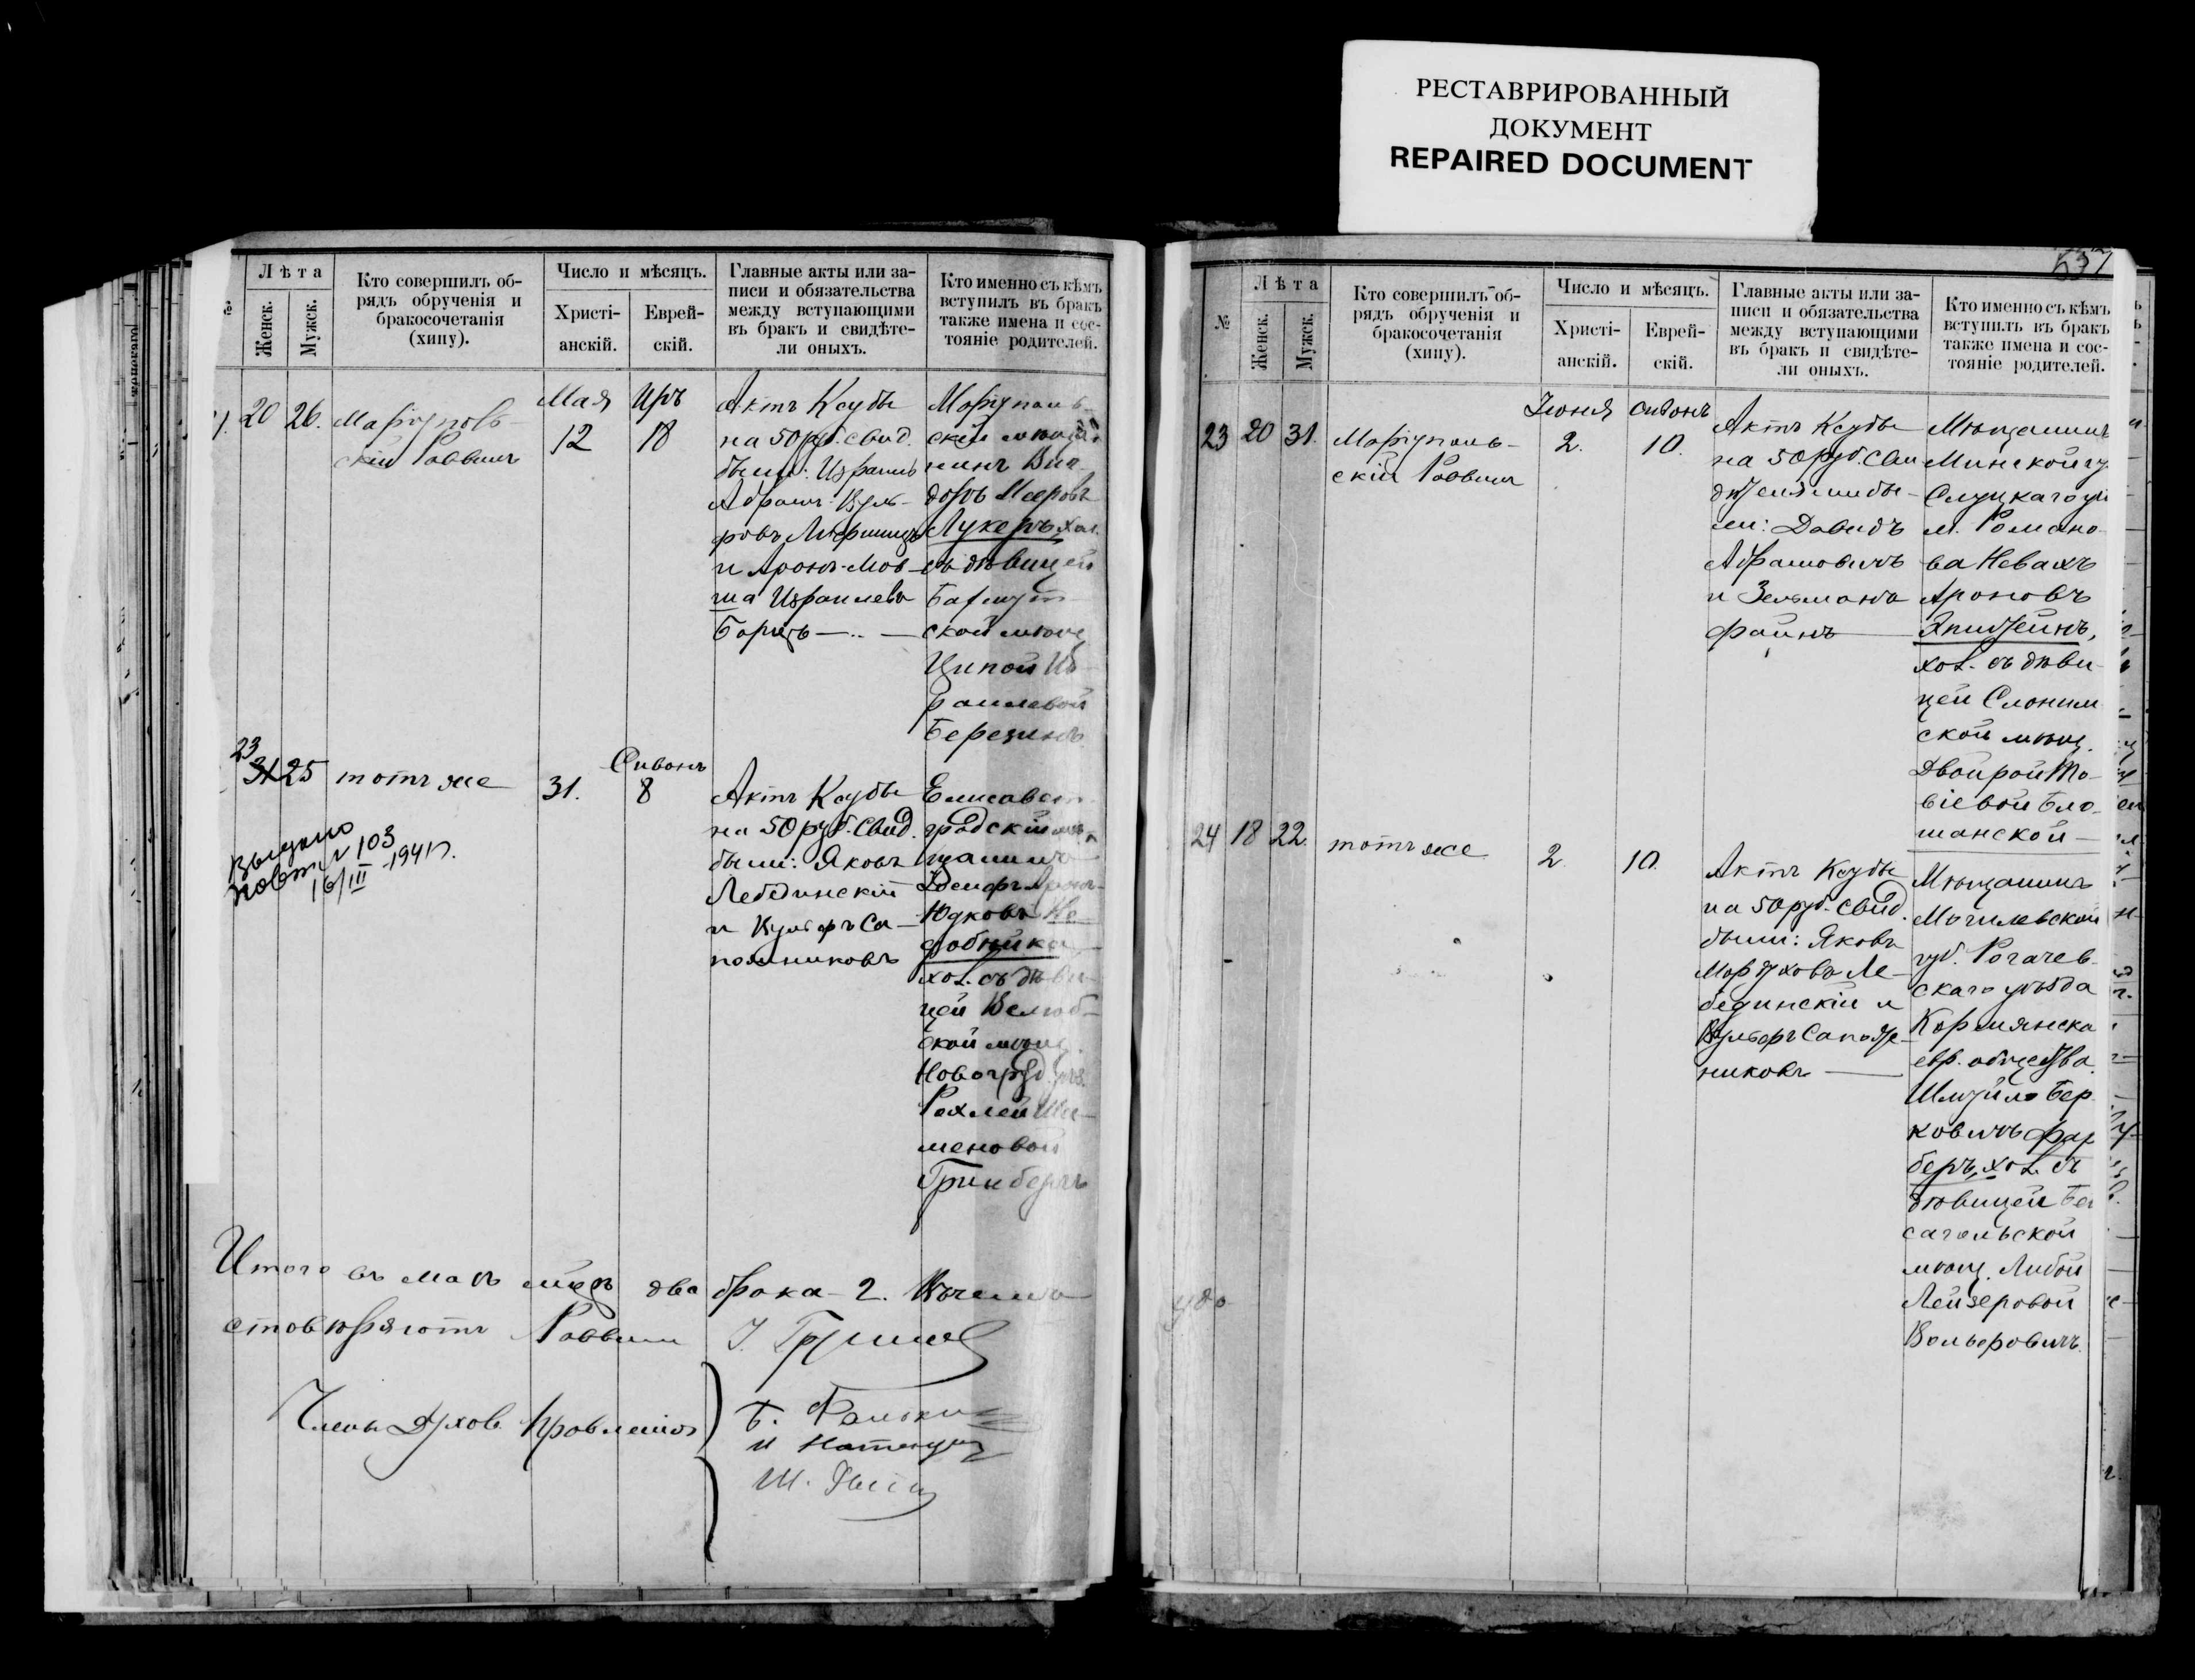 РЕСТАВРИРОВАННЫЙ
ДОКУМЕНТ
REPAIRED DOCUMENT
№
Лѣта
Женск.
Мужск.
Кто совершилъ об-
рядъ обрученія и
бракосочетанія
(хипу).
Число и мѣсяцъ.
Христі-
анскій.
Еврей-
скій.
Главные акты или за-
писи и обязательства
между вступающими
въ бракъ и свидѣте-
ли оныхъ.
Кто именно съ кѣмъ
вступилъ въ бракъ
также имена и сос-
тояніе родителей.
20 26.
Маріуполь-
скій Раввинъ
Мая
12
Иръ
18
Актъ Ксубы
на 50 руб. Свид.
были: Израиль
Абрам. Вуль-
фовъ
и Аронъ-Мов-
ша Израилевъ
Маріуполь-
скій мѣща-
нинъ Виг-
доръ Мееровъ
Лукеръ, хол.
съ дѣвицей
Бахмут-
ской мѣщ.
Ципой Из-
раилевой
Березинъ
23
31 25
тотъ же
31.
Сивонъ
8
Актъ Ксубы
на 50 руб. Свид.
были: Яковъ
Лебединскій
и Вульфъ Са-
пожниковъ
Елисавет-
градскій мѣ-
щанинъ
Юдковъ
хол. съ дѣви-
цей
ской мѣщ.
Рохлей Ши-
меновой
Гринбергъ
выдано
повт. № 103
16/III-1941 г.
Итого въ маѣ м-цѣ два брака - 2. Въ чемъ и
стовѣряютъ Раввинъ
Члены Духов. Правленія
657
№
Лѣта
Женск.
Мужск.
Кто совершилъ об-
рядъ обрученія и
бракосочетанія
(хипу).
Число и мѣсяцъ.
Христі-
анскій.
Еврей-
скій.
Главные акты или за-
писи и обязательства
между вступающими
въ бракъ и свидѣте-
ли оныхъ.
Кто именно съ кѣмъ
вступилъ въ бракъ
также имена и сос-
тояніе родителей.
23 20 31.
Маріуполь-
скій Раввинъ
Іюня
2.
Сивонъ
10.
Актъ Ксубы
на 50 руб. Сви
дѣтелями бы-
ли: Давидъ
Абрамовичъ
и Зельманъ
Файнъ
Мѣщанинъ
Минской гу.
Слуцкаго уѣ
м. Романо-
ва Невахъ
Ароновъ
Эпштейнъ,
хол. съ дѣви-
цей Слоним
ской мѣщ.
Двойрой То-
віевой Бло-
шанской
24 18 22.
тотъ же
2.
10.
Актъ Ксубы
на 50 руб. Свид.
были: Яковъ
Мордуховъ Ле-
бединскій и
Вульфъ Сапож-
никовъ
Мѣщанинъ
Могилевской
губ. Рогачев-
скаго уѣзда
Кормянска
евр. общества
Шмуйло Бер-
ковичъ Фар
беръ, хол. съ
дѣвицей Бе
сагольской
мѣщ. Либой
Лейзеровой
Вольфовичъ